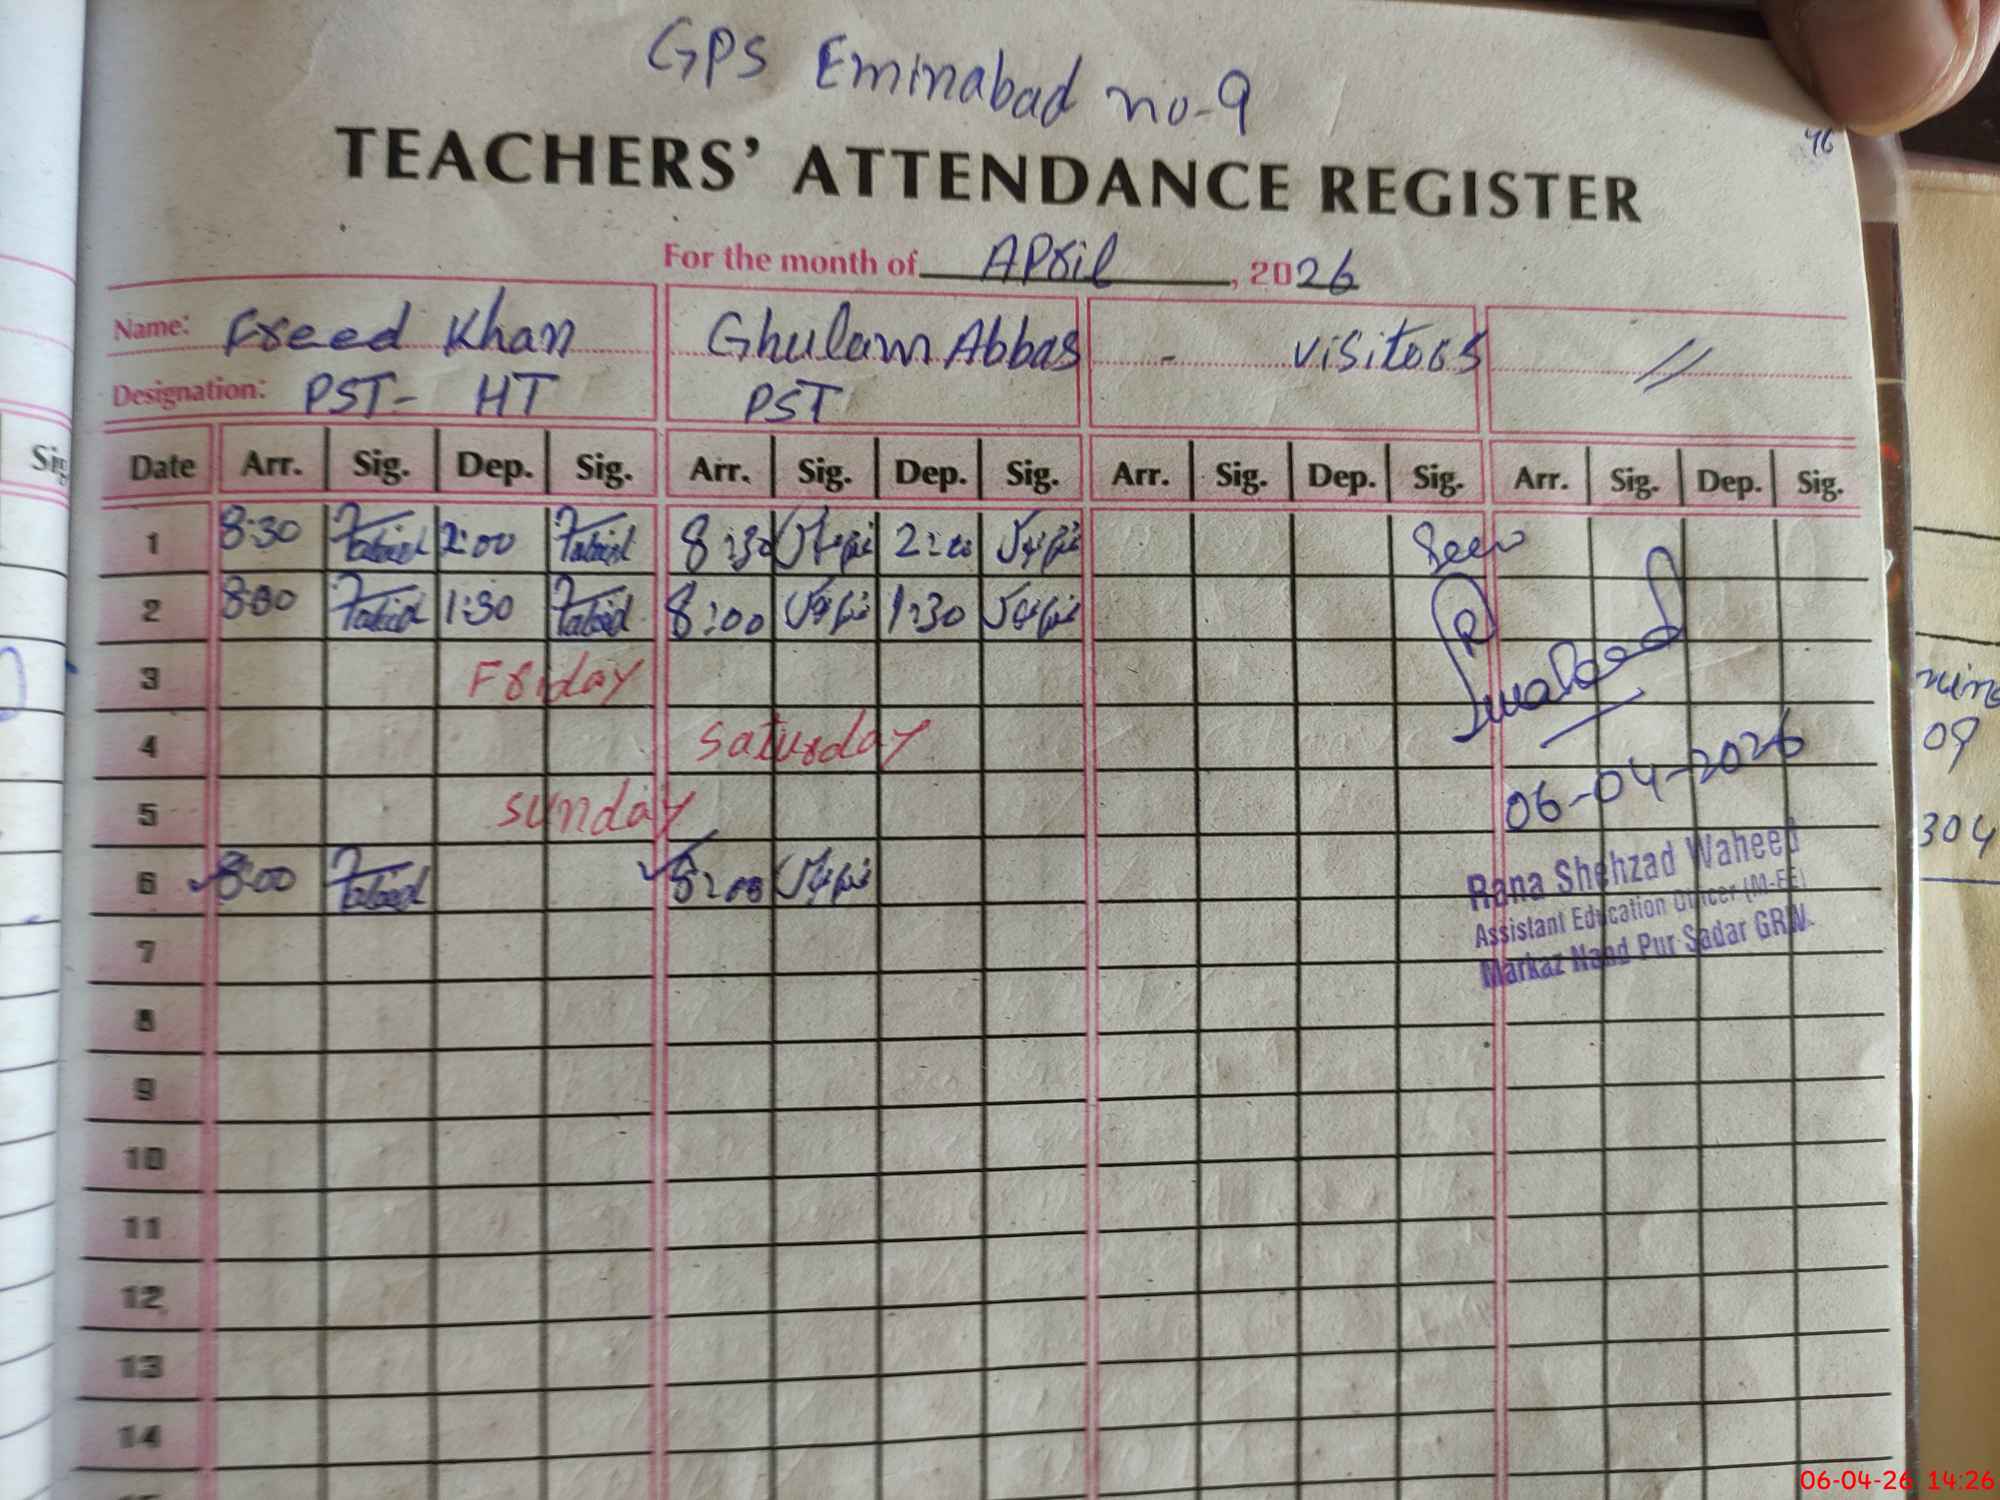 GPS Eminabad no-9
46
TEACHERS' ATTENDANCE REGISTER
For the month of April, 2026
Name: Freed Khan Ghulam Abbas - visitors //
Designation: PST- HT PST
Sig
Date Arr. Sig. Dep. Sig. Arr. Sig. Dep. Sig. Arr. Sig. Dep. Sig. Arr. Sig. Dep. Sig.
1 8:30 2:00 8:30 2:00 Seen
2 8:00 1:30 8:00 1:30
3 Friday
4 Saturday
5 Sunday
06-04-2026
6 8:00 8:00
Rana Shehzad Waheed
Assistant Education Officer (M-EE)
Markaz Nand Pur Sadar GRW.
7
8
9
10
11
12
13
14
09
304
06-04-26 14:26